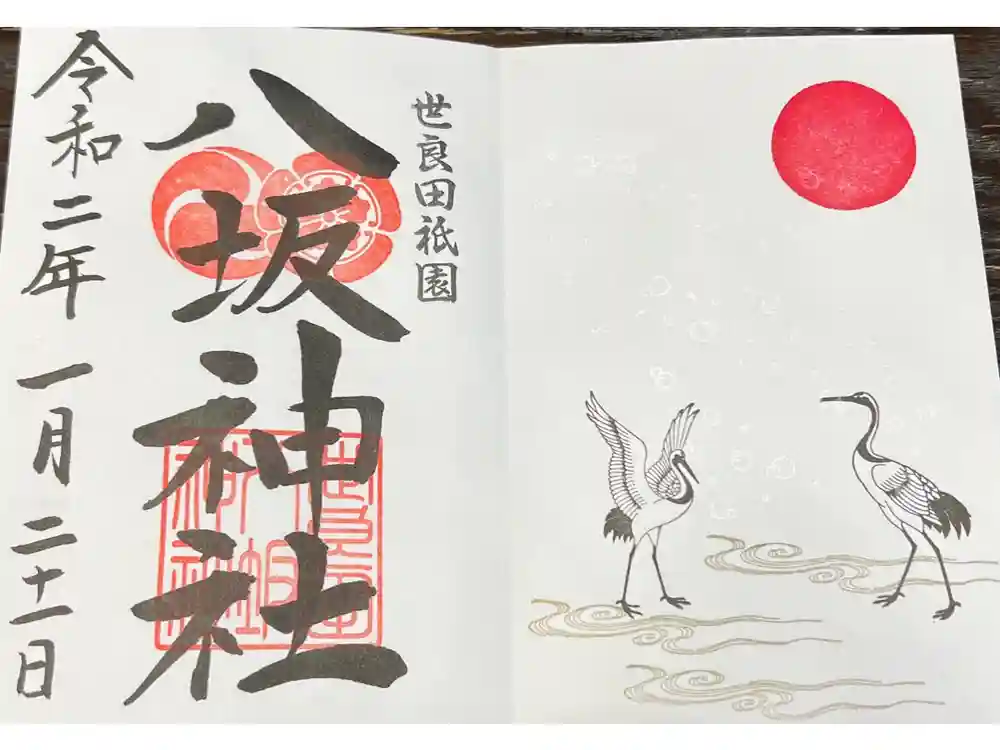 世良田祇園
八坂神社
令和二年 一月 二十一日